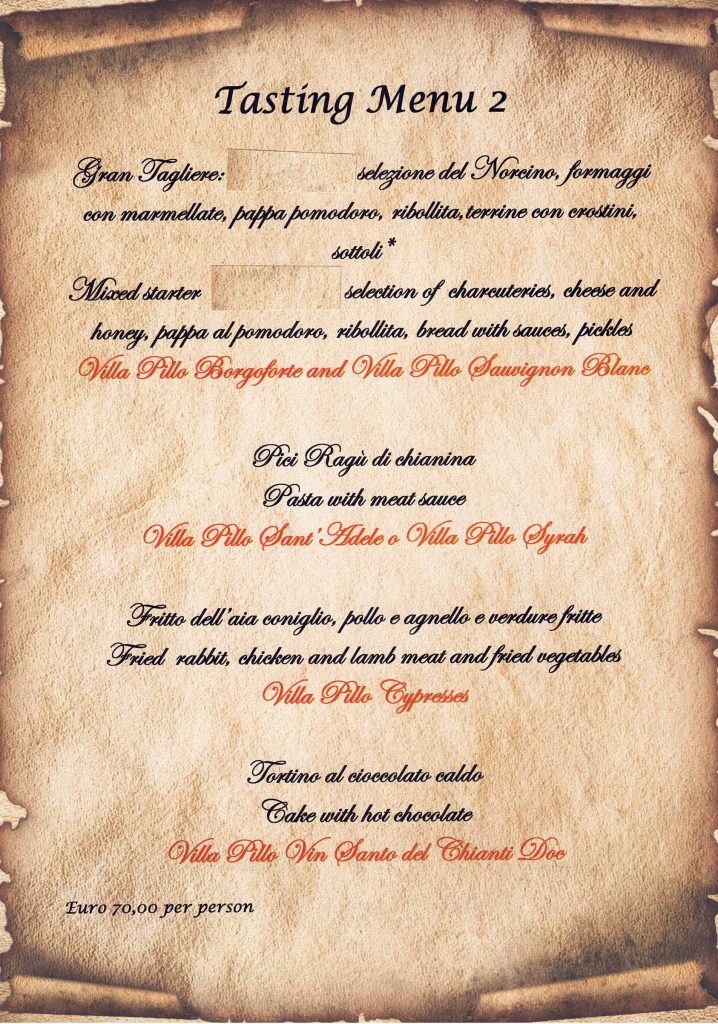 Tasting Menu 2
Gran Tagliere: selezione del Norcino, formaggi
con marmellate, pappa pomodoro, ribollita,terrine con crostini,
sottoli*
Mixed starter selection of charcuteries, cheese and
honey, pappa al pomodoro, ribollita, bread with sauces, pickles
Villa Pillo Borgoforte and Villa Pillo Sauvignon Blanc
Pici Ragù di chianina
Pasta with meat sauce
Villa Pillo Sant'Adele o Villa Pillo Syrah
Fritto dell'aia coniglio, pollo e agnello e verdure fritte
Fried rabbit, chicken and lamb meat and fried vegetables
Villa Pillo Cypresses
Tortino al cioccolato caldo
Cake with hot chocolate
Villa Pillo Vin Santo del Chianti Doc
Euro 70,00 per person